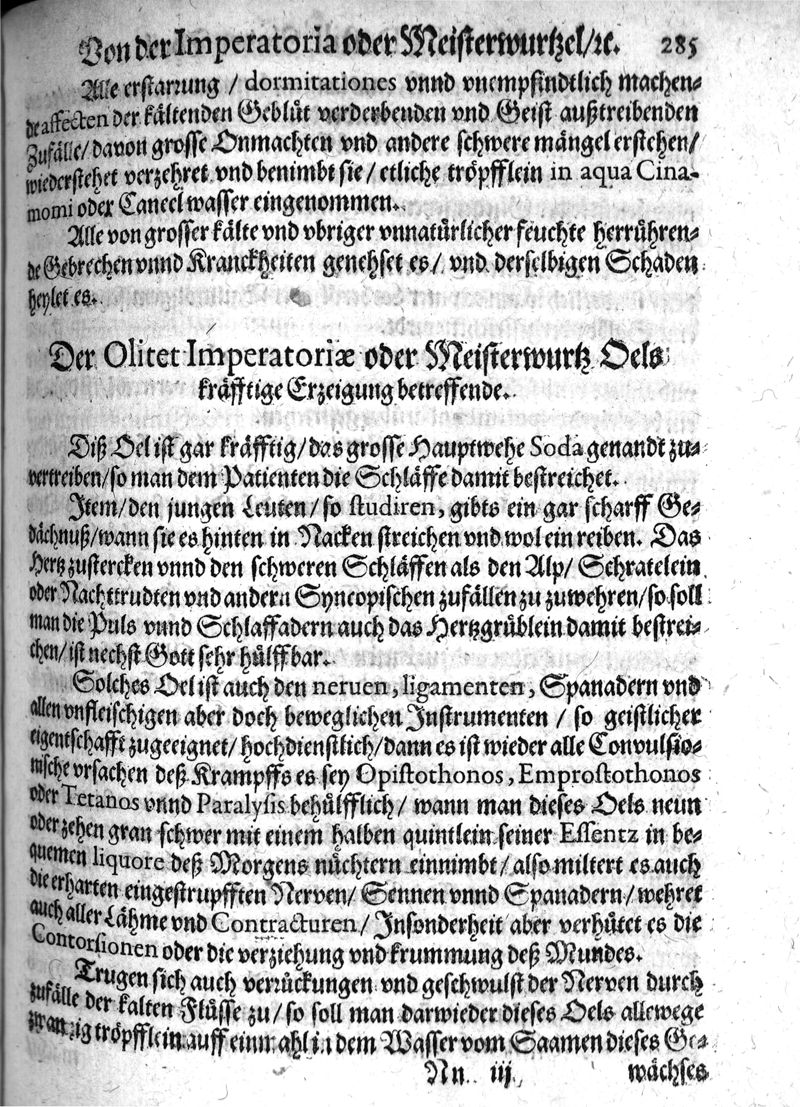 Von der Imperatoria oder Meisterwurtzel/ꝛc. 285
Alle erstarrung / dormitationes vnnd vnempfindtlich machen⸗
de affecten der kältenden Geblüt verderbenden vnd Geist außtreibenden
Zufälle/ davon grosse Onmachten vnd andere schwere mängel erstehen/
wiederstehet verzehret vnd benimbt sie / etliche tröpfflein in aqua Cina-
momi oder Caneel wasser eingenommen.
Alle von grosser kälte vnd vbriger vnnatürlicher feuchte herrühren⸗
de Gebrechen vnnd Kranckheiten genehset es/ vnd derselbigen Schaden
heylet es.
Der Olitet Imperatoriæ oder Meisterwurtz Oels
kräfftige Erzeigung betreffende.
Diß Oel ist gar kräfftig/ das grosse Hauptwehe Soda genandt zu⸗
vertreiben/ so man dem Patienten die Schläffe damit bestreichet.
Item/ den jungen Leuten/ so studiren, gibts ein gar scharff Ge⸗
dächnuß/ wann sie es hinten in Nacken streichen und wol ein reiben. Das
Hertz zustercken vnnd den schweren Schläffen als den Alp/ Schratelein
oder Nachttrudten vnd andern Syncopischen zufällen zu zuwehren/ so soll
man die Puls vnnd Schlaffadern auch das Hertzgrüblein damit bestrei⸗
chen/ ist nechst Gott sehr hülffbar.
Solches Oel ist auch den neruen, ligamenten, Spanadern vnd
allen vnfleischigen aber doch beweglichen Instrumenten / so geistlicher
eigentschafft zugeeignet/ hochdienstlich/ dann es ist wieder alle Convulsio⸗
nische vrsachen deß Krampffs es sey Opistothonos, Emprostothonos
oder Tetanos vnnd Paralysis behülfflich/ wann man dieses Oels neun
oder zehen gran schwer mit einem halben quintlein seiner Essentz in be⸗
quemen liquore deß Morgens nüchtern einnimbt / also miltert es auch
die erharten eingestrupfften Nerven/ Sennen vnnd Spanadern / wehret
auch aller Lähme vnd Contracturen/ Insonderheit aber verhütet es die
Contorsionen oder die verziehung vnd krummung deß Mundes.
Trugen sich auch verrückungen vnd geschwulst der Nerven durch
zufälle der kalten Flüsse zu / so soll man darwieder dieses Oels allewege
zwantzig tröpfflein auff einmahl in dem Wasser vom Saamen dieses Ge⸗
Nn iij wächses